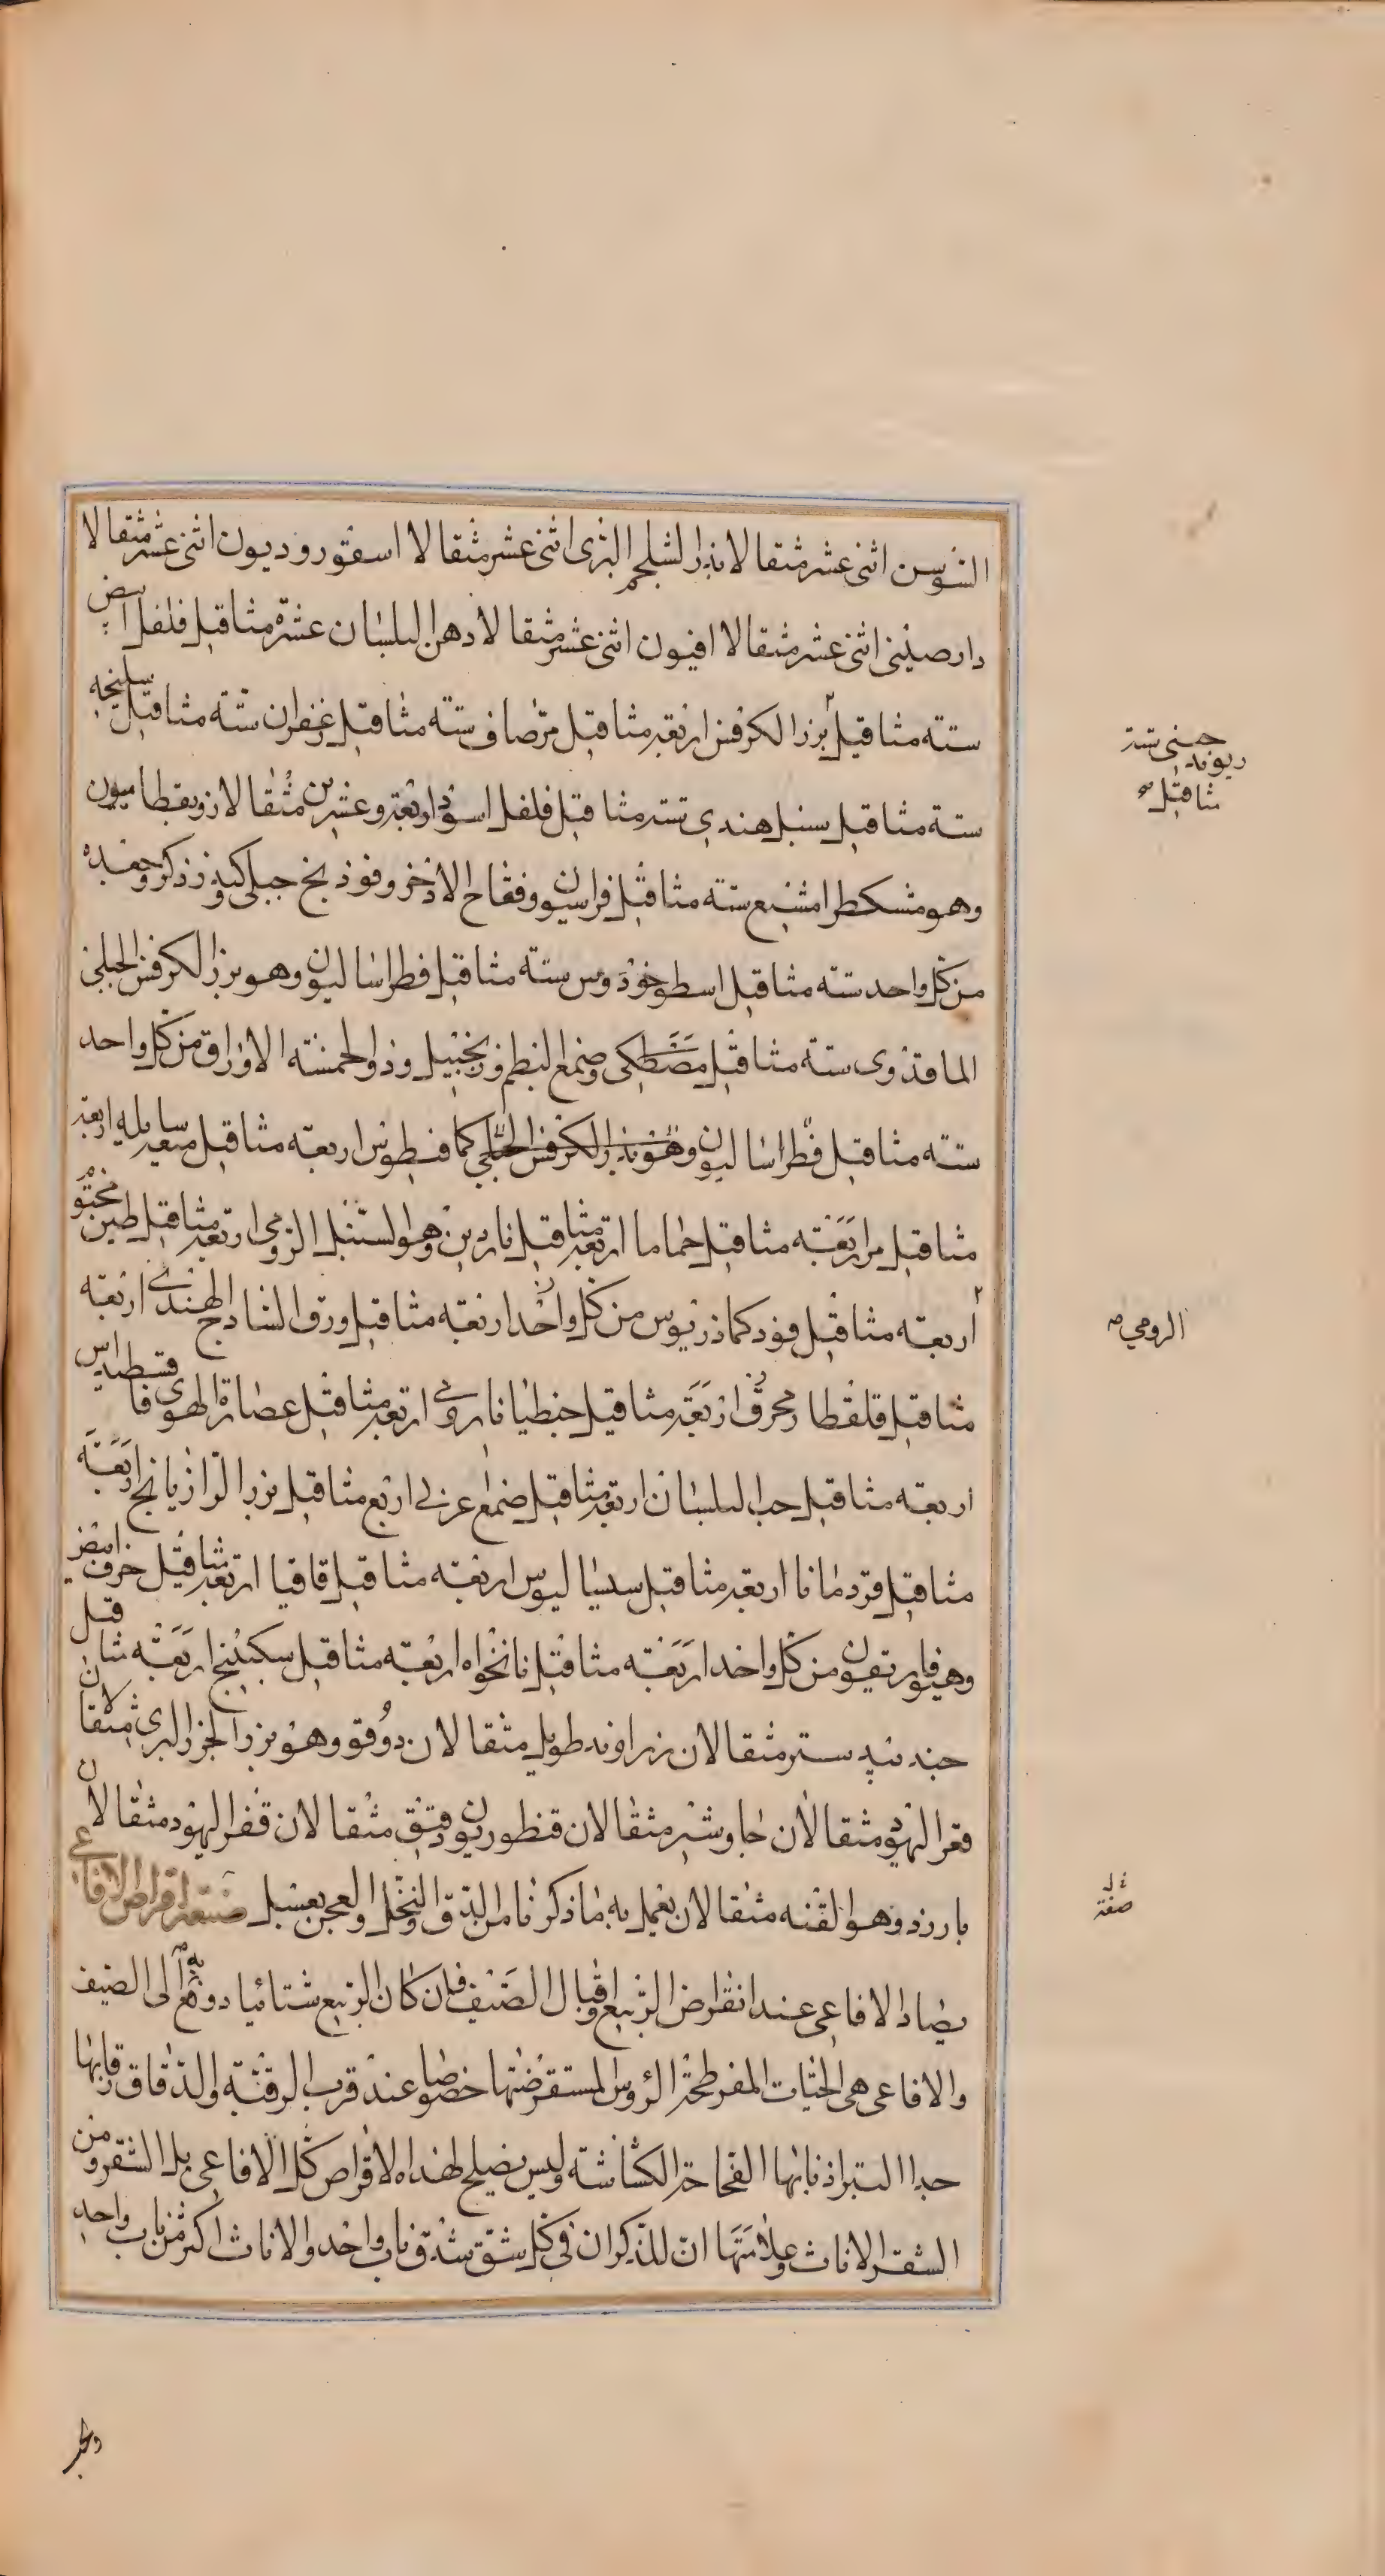 السوسن اثنى عشر مثقالا بذر الشلجم البرى اثنى عشر مثقالا اسقوروديون اثنى عشر مثقالا
دارصينى اثنى عشر مثقالا افيون اثنى عشر مثقالا دهن البلسان عشرة مثاقيل فلفل ابيض
ستة مثاقيل بزر الكرفس اربعة مثاقيل مر صاف ستة مثاقيل زعفران ستة مثاقيل سليخه
ستة مثاقيل سنبل هندي ستة مثاقيل فلفل اسود اربعة وعشرين مثقالا ذويقطاميون
وهو مشكطرامشيع ستة مثاقيل فراسيون وفقاح الاذخر وفوذنج جبلى كندر ذكر وجعده
من كل واحد ستة مثاقيل اسطوخودوس ستة مثاقيل فطراساليون وهو بزر الكرفس الجبلى
الماقذوى ستة مثاقيل مصطكى وصمغ البطم وزنجبيل وذو الخمسة الاوراق من كل واحد
ستة مثاقيل فطراساليون وهو بذر الكرفس الجبلي كمافيطوس اربعة مثاقيل ميعة سايله اربعة
مثاقيل مر اربعة مثاقيل حماما اربعة مثاقيل ناردين وهو السنبل الرومي اربعة مثاقيل طين مختوم
اربعة مثاقيل فو دكماذريوس من كل واحد اربعة مثاقيل ورق الساذج الهندى اربعة
مثاقيل قلقطار محرق اربعة مثاقيل جنطيانا رومى اربعة مثاقيل عصارة الهوفاقسطيداس
اربعة مثاقيل حب البلسان اربعة مثاقيل صمغ عربى اربع مثاقيل بزر الرازيانج اربعة
مثاقيل قردمانا اربعة مثاقيل سساليوس اربعة مثاقيل قاقيا اربعة مثاقيل حرف ابيض
وهيوفاريقون من كل واحد اربعة مثاقيل نانخواه اربعة مثاقيل سكبينج اربعة مثاقيل
جندبيدستر مثقالان زراوند طويل مثقالان دوقو وهو بزر الجزر البرى مثقالان
قفر اليهود مثقالان جاوشير مثقالان قنطوريون دقيق مثقالان قفر اليهود مثقالان
بارزد وهو القنه مثقالان يعمل به ما ذكرنا من الدق والنخل والعجن بعسل صنعة اقراص الافاعى
يصاد الافاعى عند انقراض الربيع واقبال الصيف فان كان الربيع شتائيا دوفع به الى الصيف
والافاعى هى الحيات المفرطحة الرؤس المستعرضتها خصوصا عند قرب الرقبة والدقاق رقابها
جدا البتر اذنابها الفحاحة الكشاشة وليس يصلح لهذه الاقراص كل الافاعى بل الشقر ومن
الشقر الاناث وعلامتها ان للذكران فى كل شق شدق ناب واحد والاناث اكثر من ناب واحد
ريوند جينى ستة
مثاقيل
الرومي
صفة